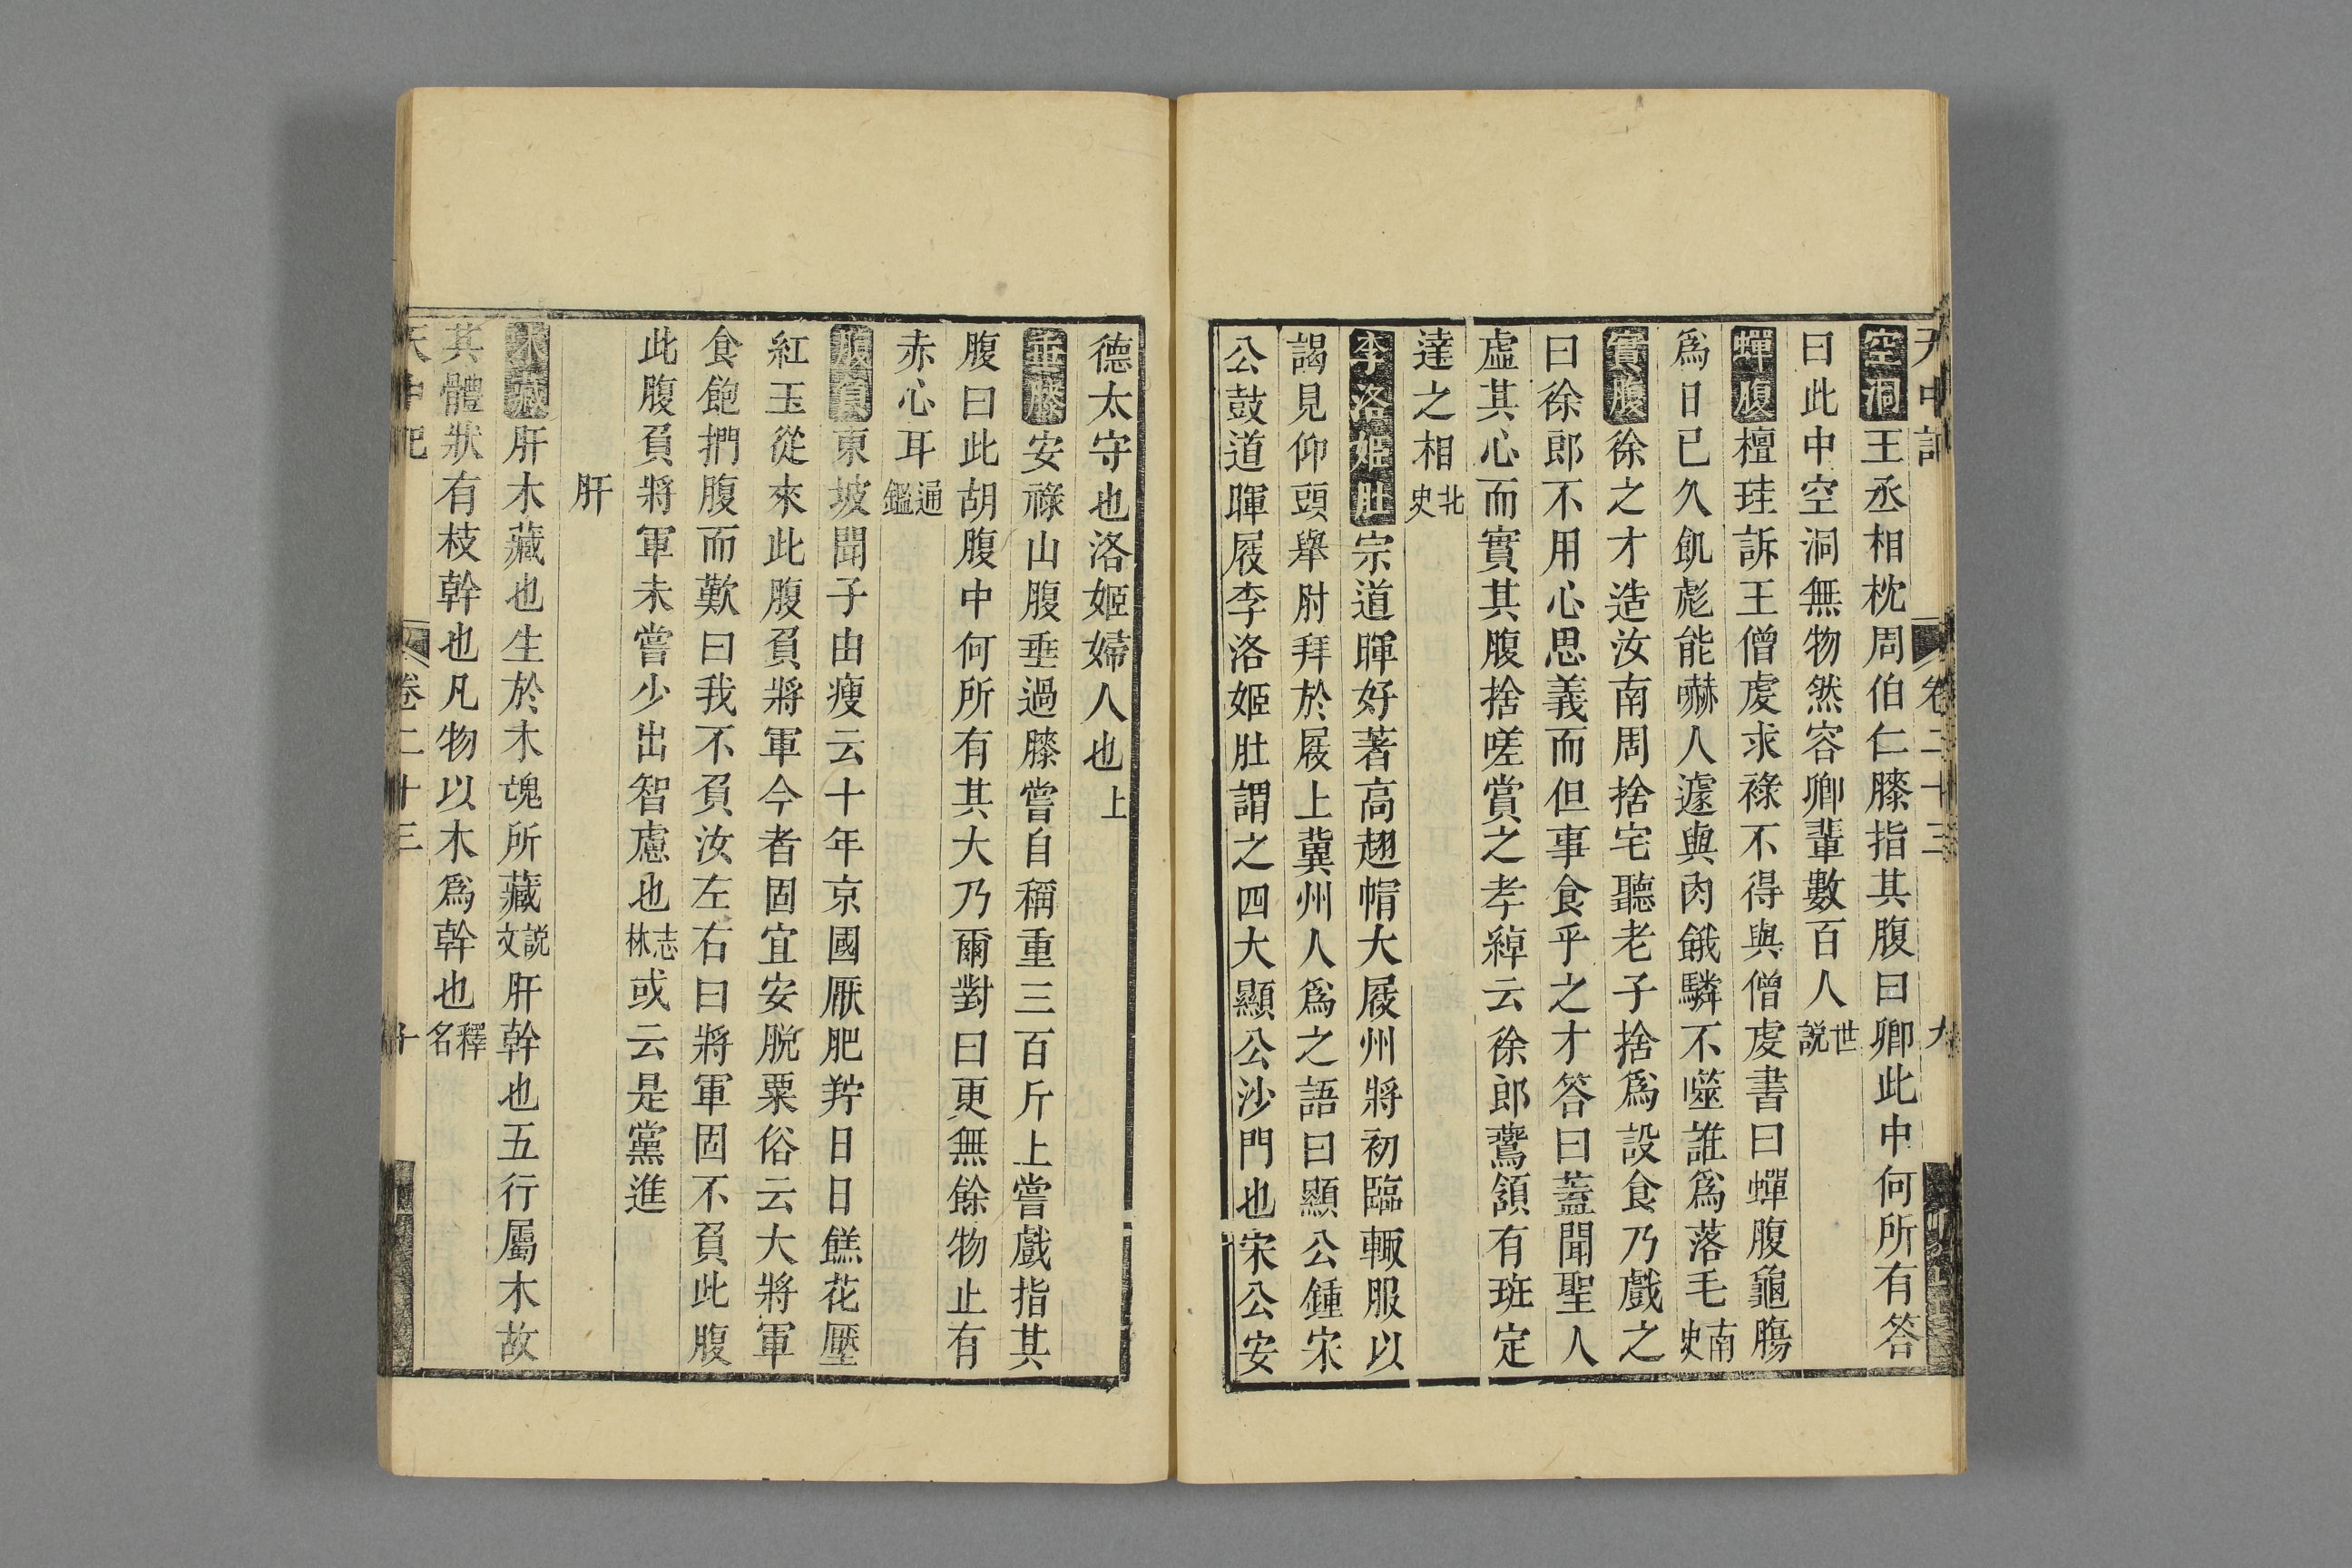 天中記 卷二十三 九
空洞王丞相枕周伯仁膝指其腹曰卿此中何所有答
曰此中空洞無物然容卿輩數百人世說
蟬腹檀珪訴王僧虔求祿不得與僧虔書曰蟬腹龜腸
爲日已久飢彪能嚇人遽與肉餓驎不噬誰爲落毛南史
實腹徐之才造汝南周捨宅聽老子捨爲設食乃戲之
曰徐郎不用心思義而但事食乎之才答曰蓋聞聖人
虛其心而實其腹捨嗟賞之孝綽云徐郎鷰頷有班定
達之相北史
李洛姬肚宗道暉好著高翅帽大屐州將初臨輙服以
謁見仰頭舉肘拜於屐上冀州人爲之語曰顯公鍾宋
公鼓道暉屐李洛姬肚謂之四大顯公沙門也宋公安
德太守也洛姬婦人也上
垂膝安祿山腹垂過膝嘗自稱重三百斤上嘗戲指其
腹曰此胡腹中何所有其大乃爾對曰更無餘物止有
赤心耳通鑑
腹負東坡聞子由瘦云十年京國厭肥羜日日餻花壓
紅玉從來此腹負將軍今者固宜安脫粟俗云大將軍
食飽捫腹而歎曰我不負汝左右曰將軍固不負此腹
此腹負將軍未嘗少出智慮也志林或云是黨進
肝
木藏肝木藏也生於木魂所藏說文肝幹也五行屬木故
其體狀有枝幹也凡物以木爲幹也釋名
天中記 卷二十三